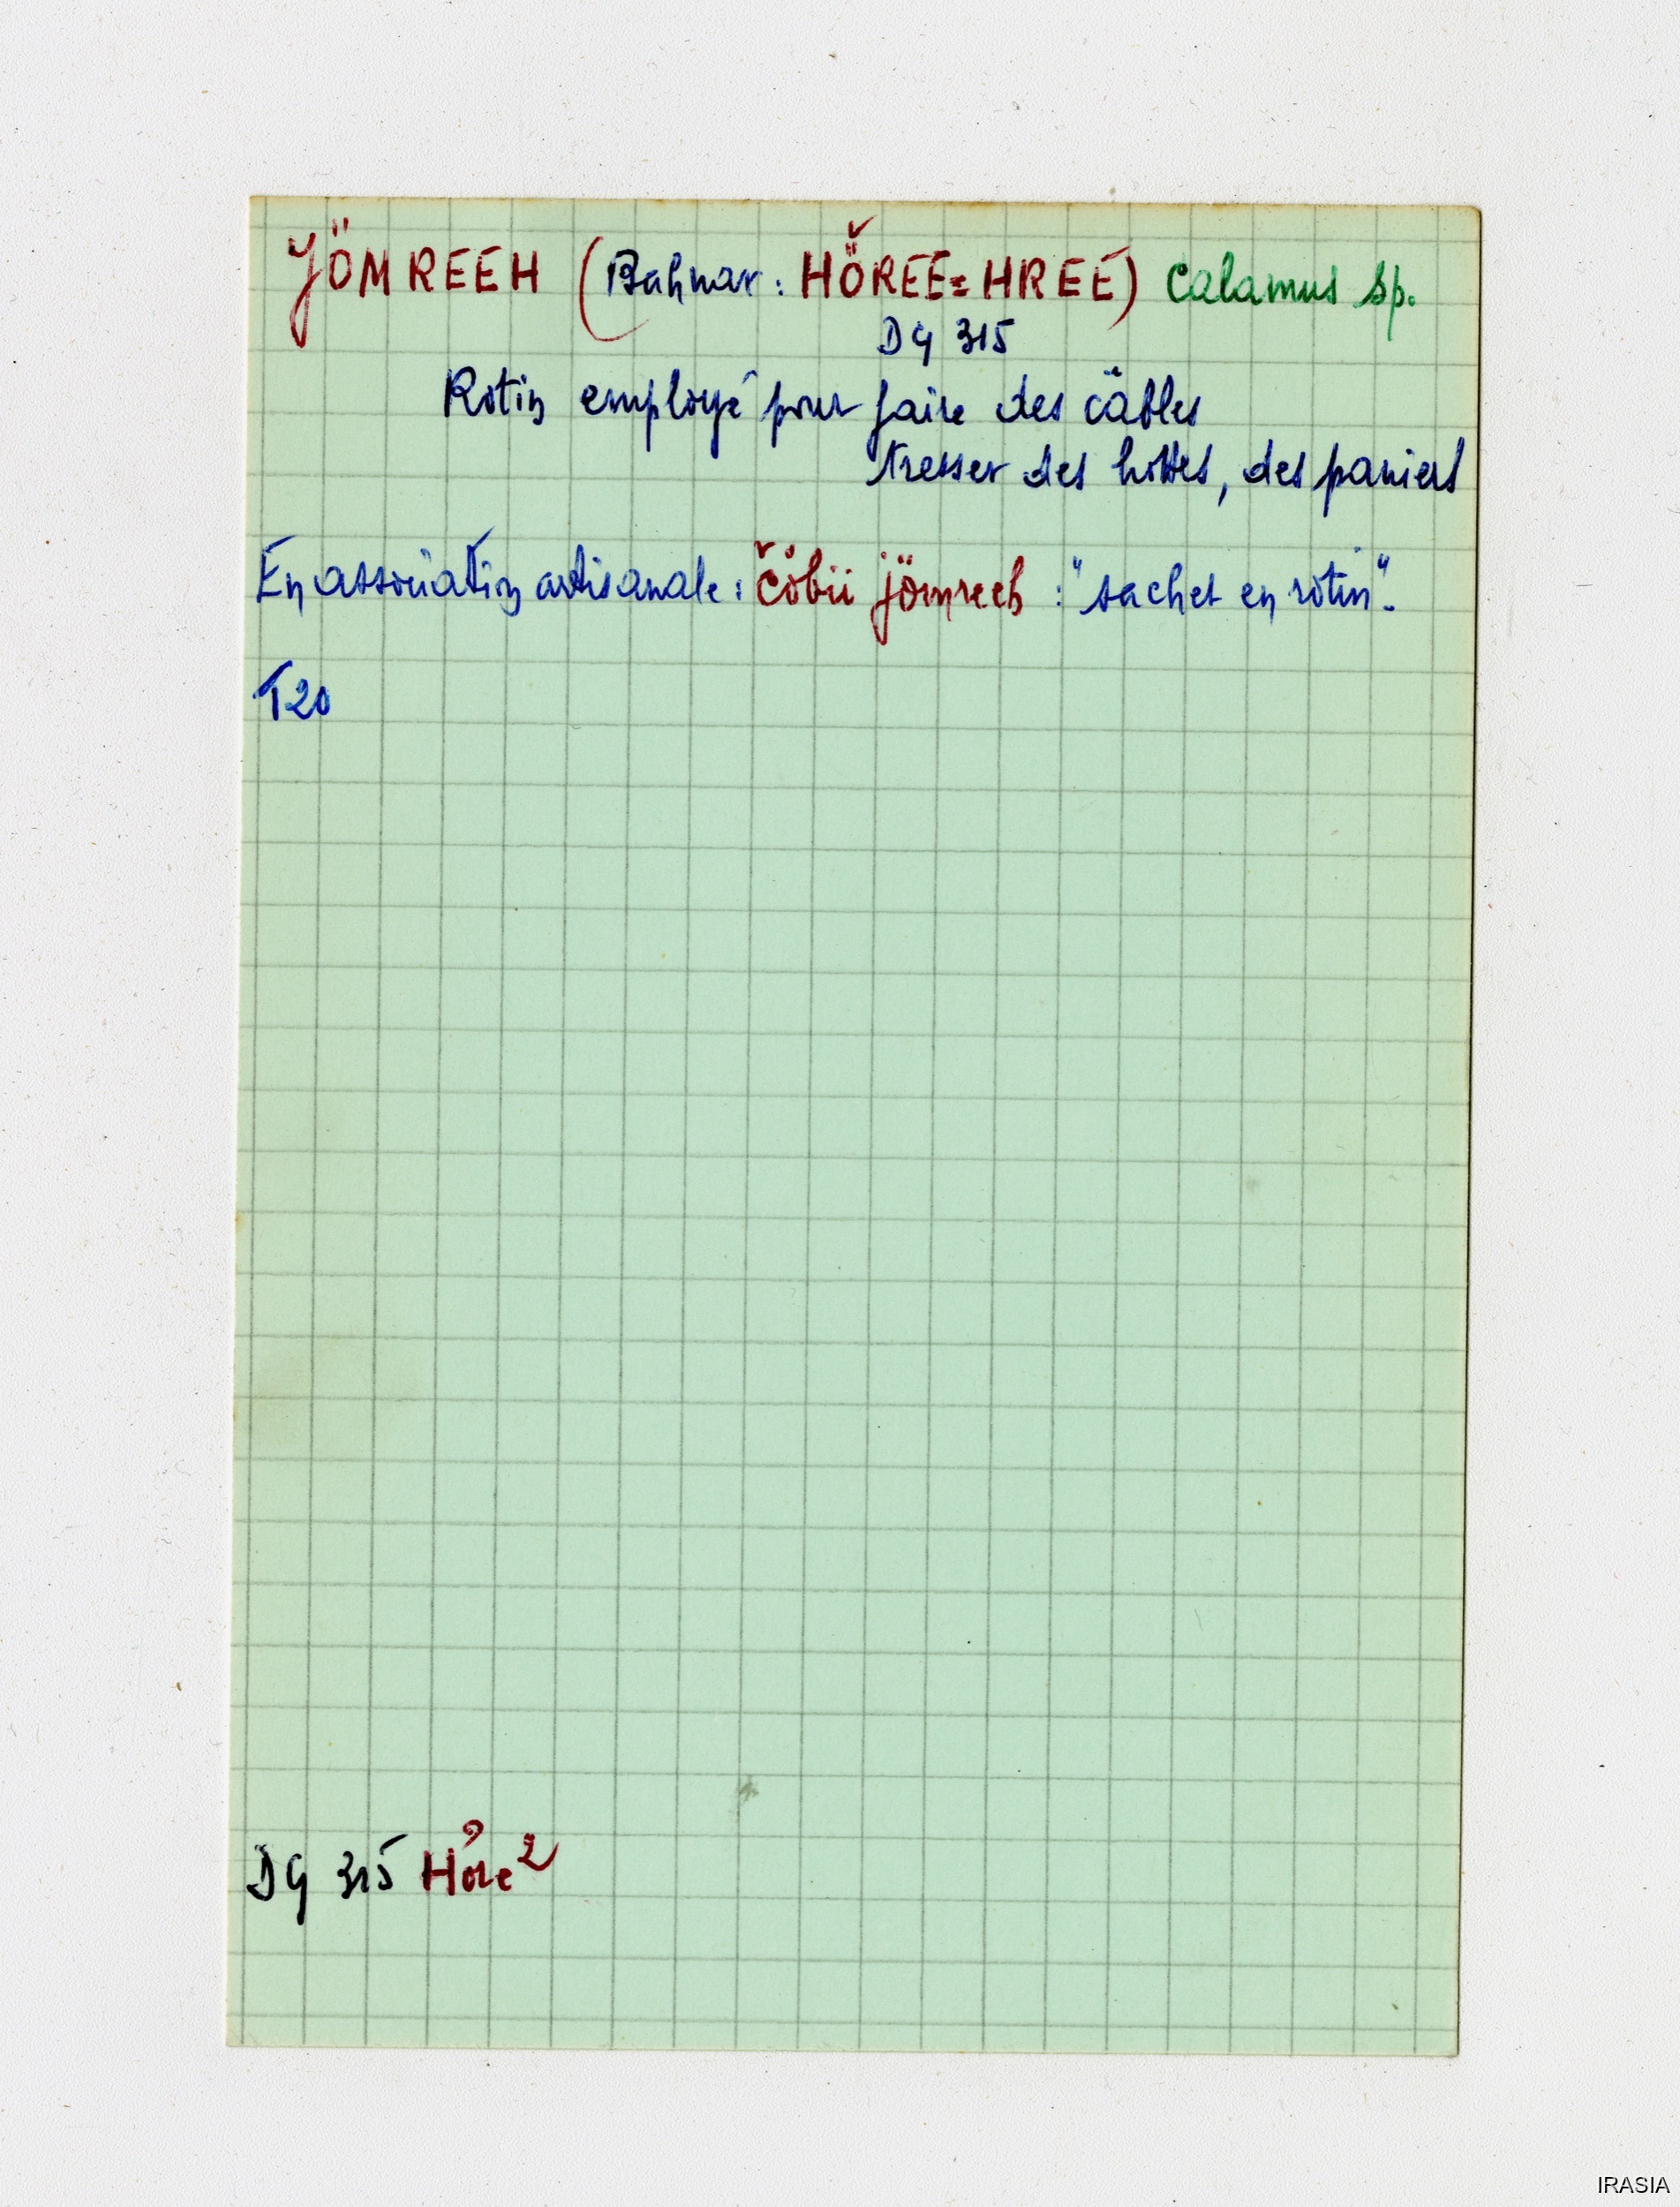 JÖMREEH (Bahnar : HÖ̌REE = HREE) Calamus sp.
DG 315
Rotin employé pour faire des câbles
tresser des hottes, des paniers
En association artisanale : čöbii jömreeh : "sachet en rotin".
T20
DG 315 Hởre²
IRASIA